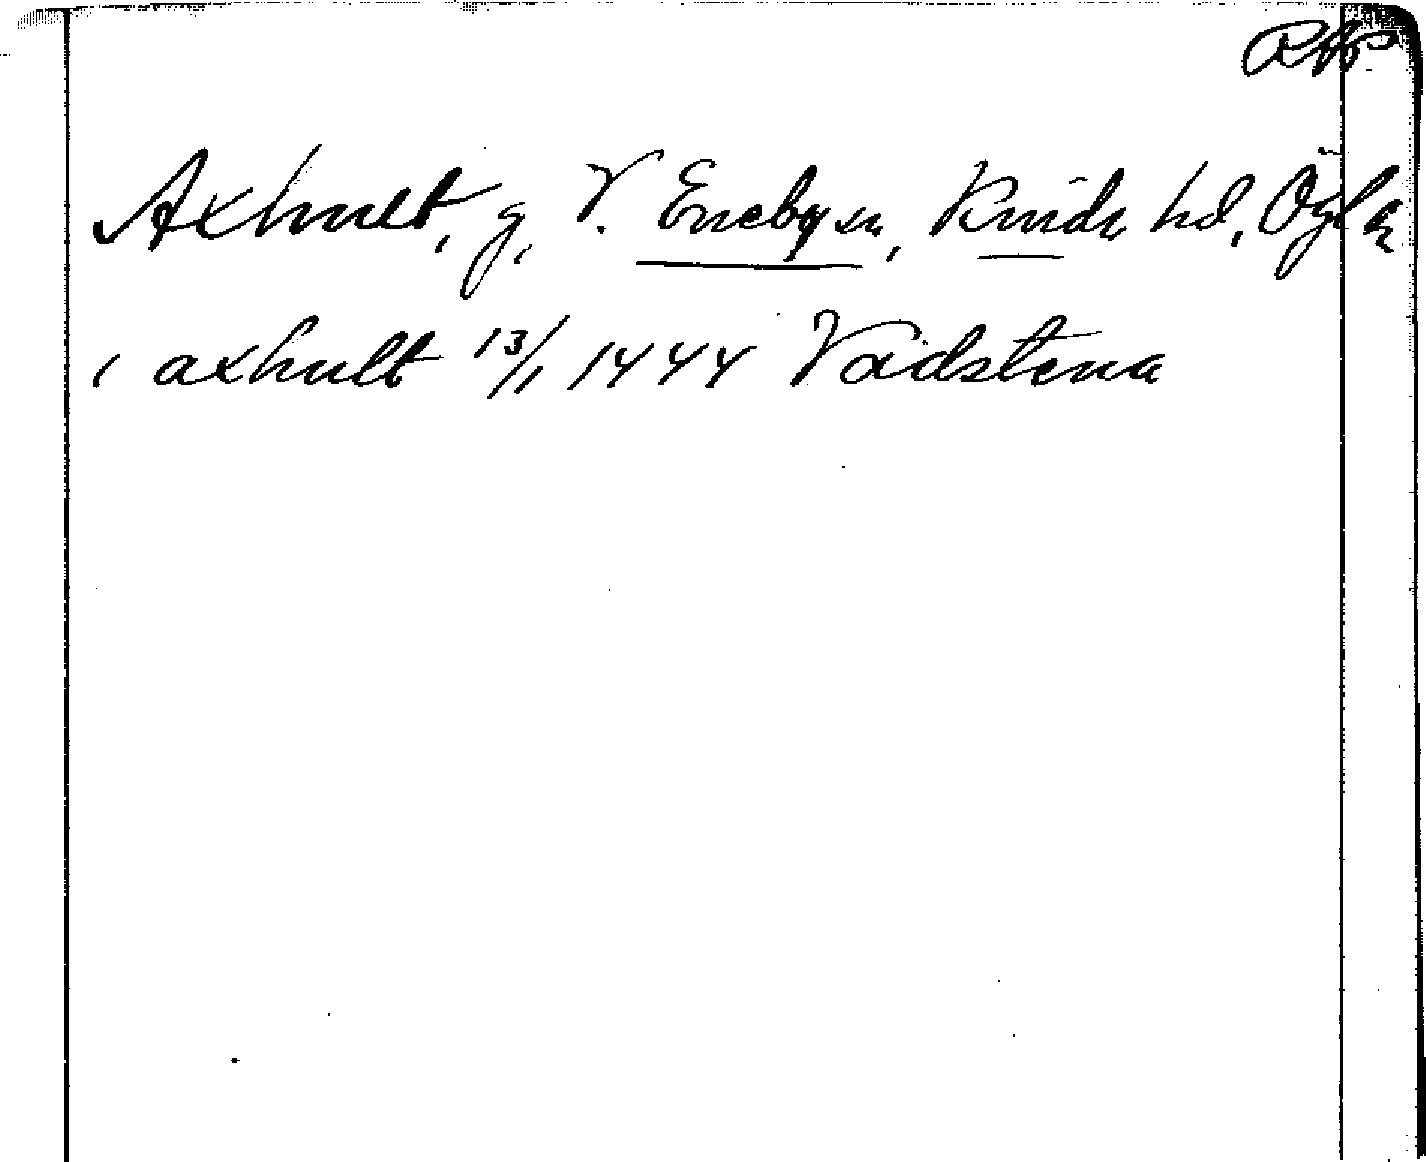 RAp
Axhult, g, V. Eneby sn, Kinds hd, Ögl
i axhult 13/1 1444 Vadstena